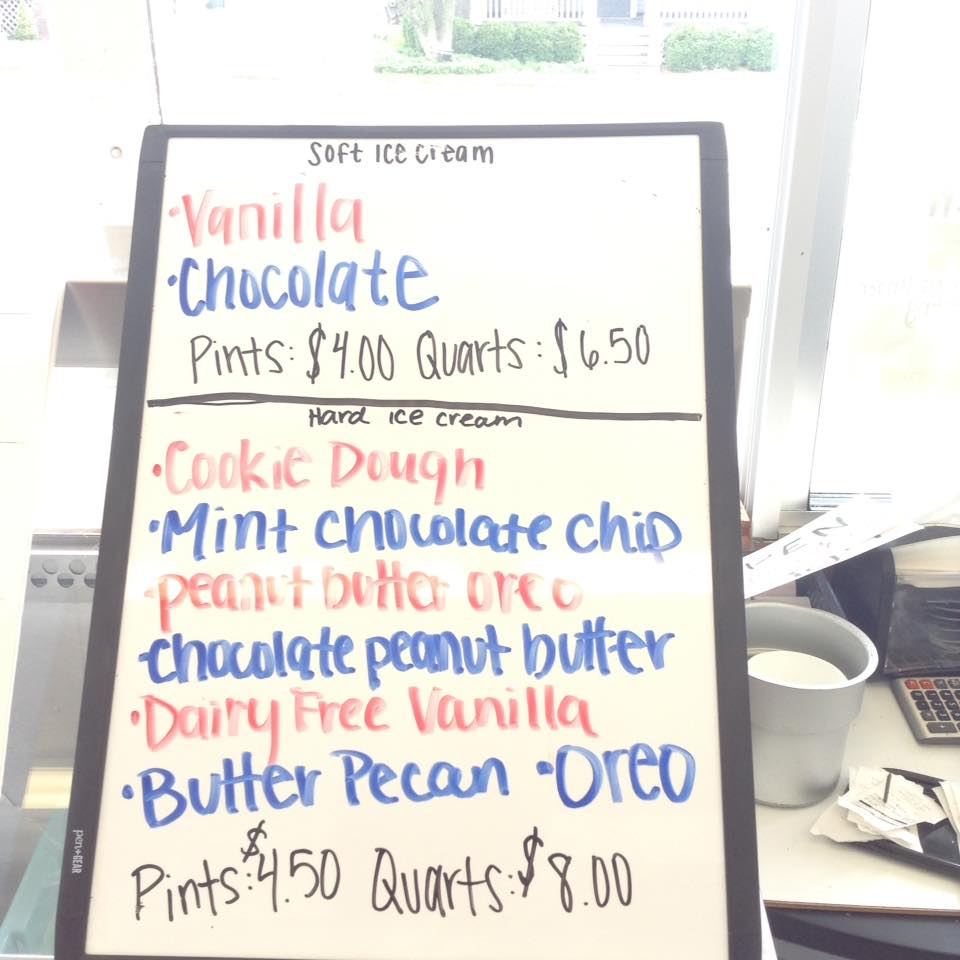 Soft Ice Cream
·Vanilla
·Chocolate
Pints: $4.00 Quarts: $6.50
Hard ice cream
·Cookie Dough
·Mint Chocolate Chip
·peanut butter oreo
·chocolate peanut butter
·Dairy Free Vanilla
·Butter Pecan ·Oreo
Pints: $4.50 Quarts: $8.00
pen+GEAR